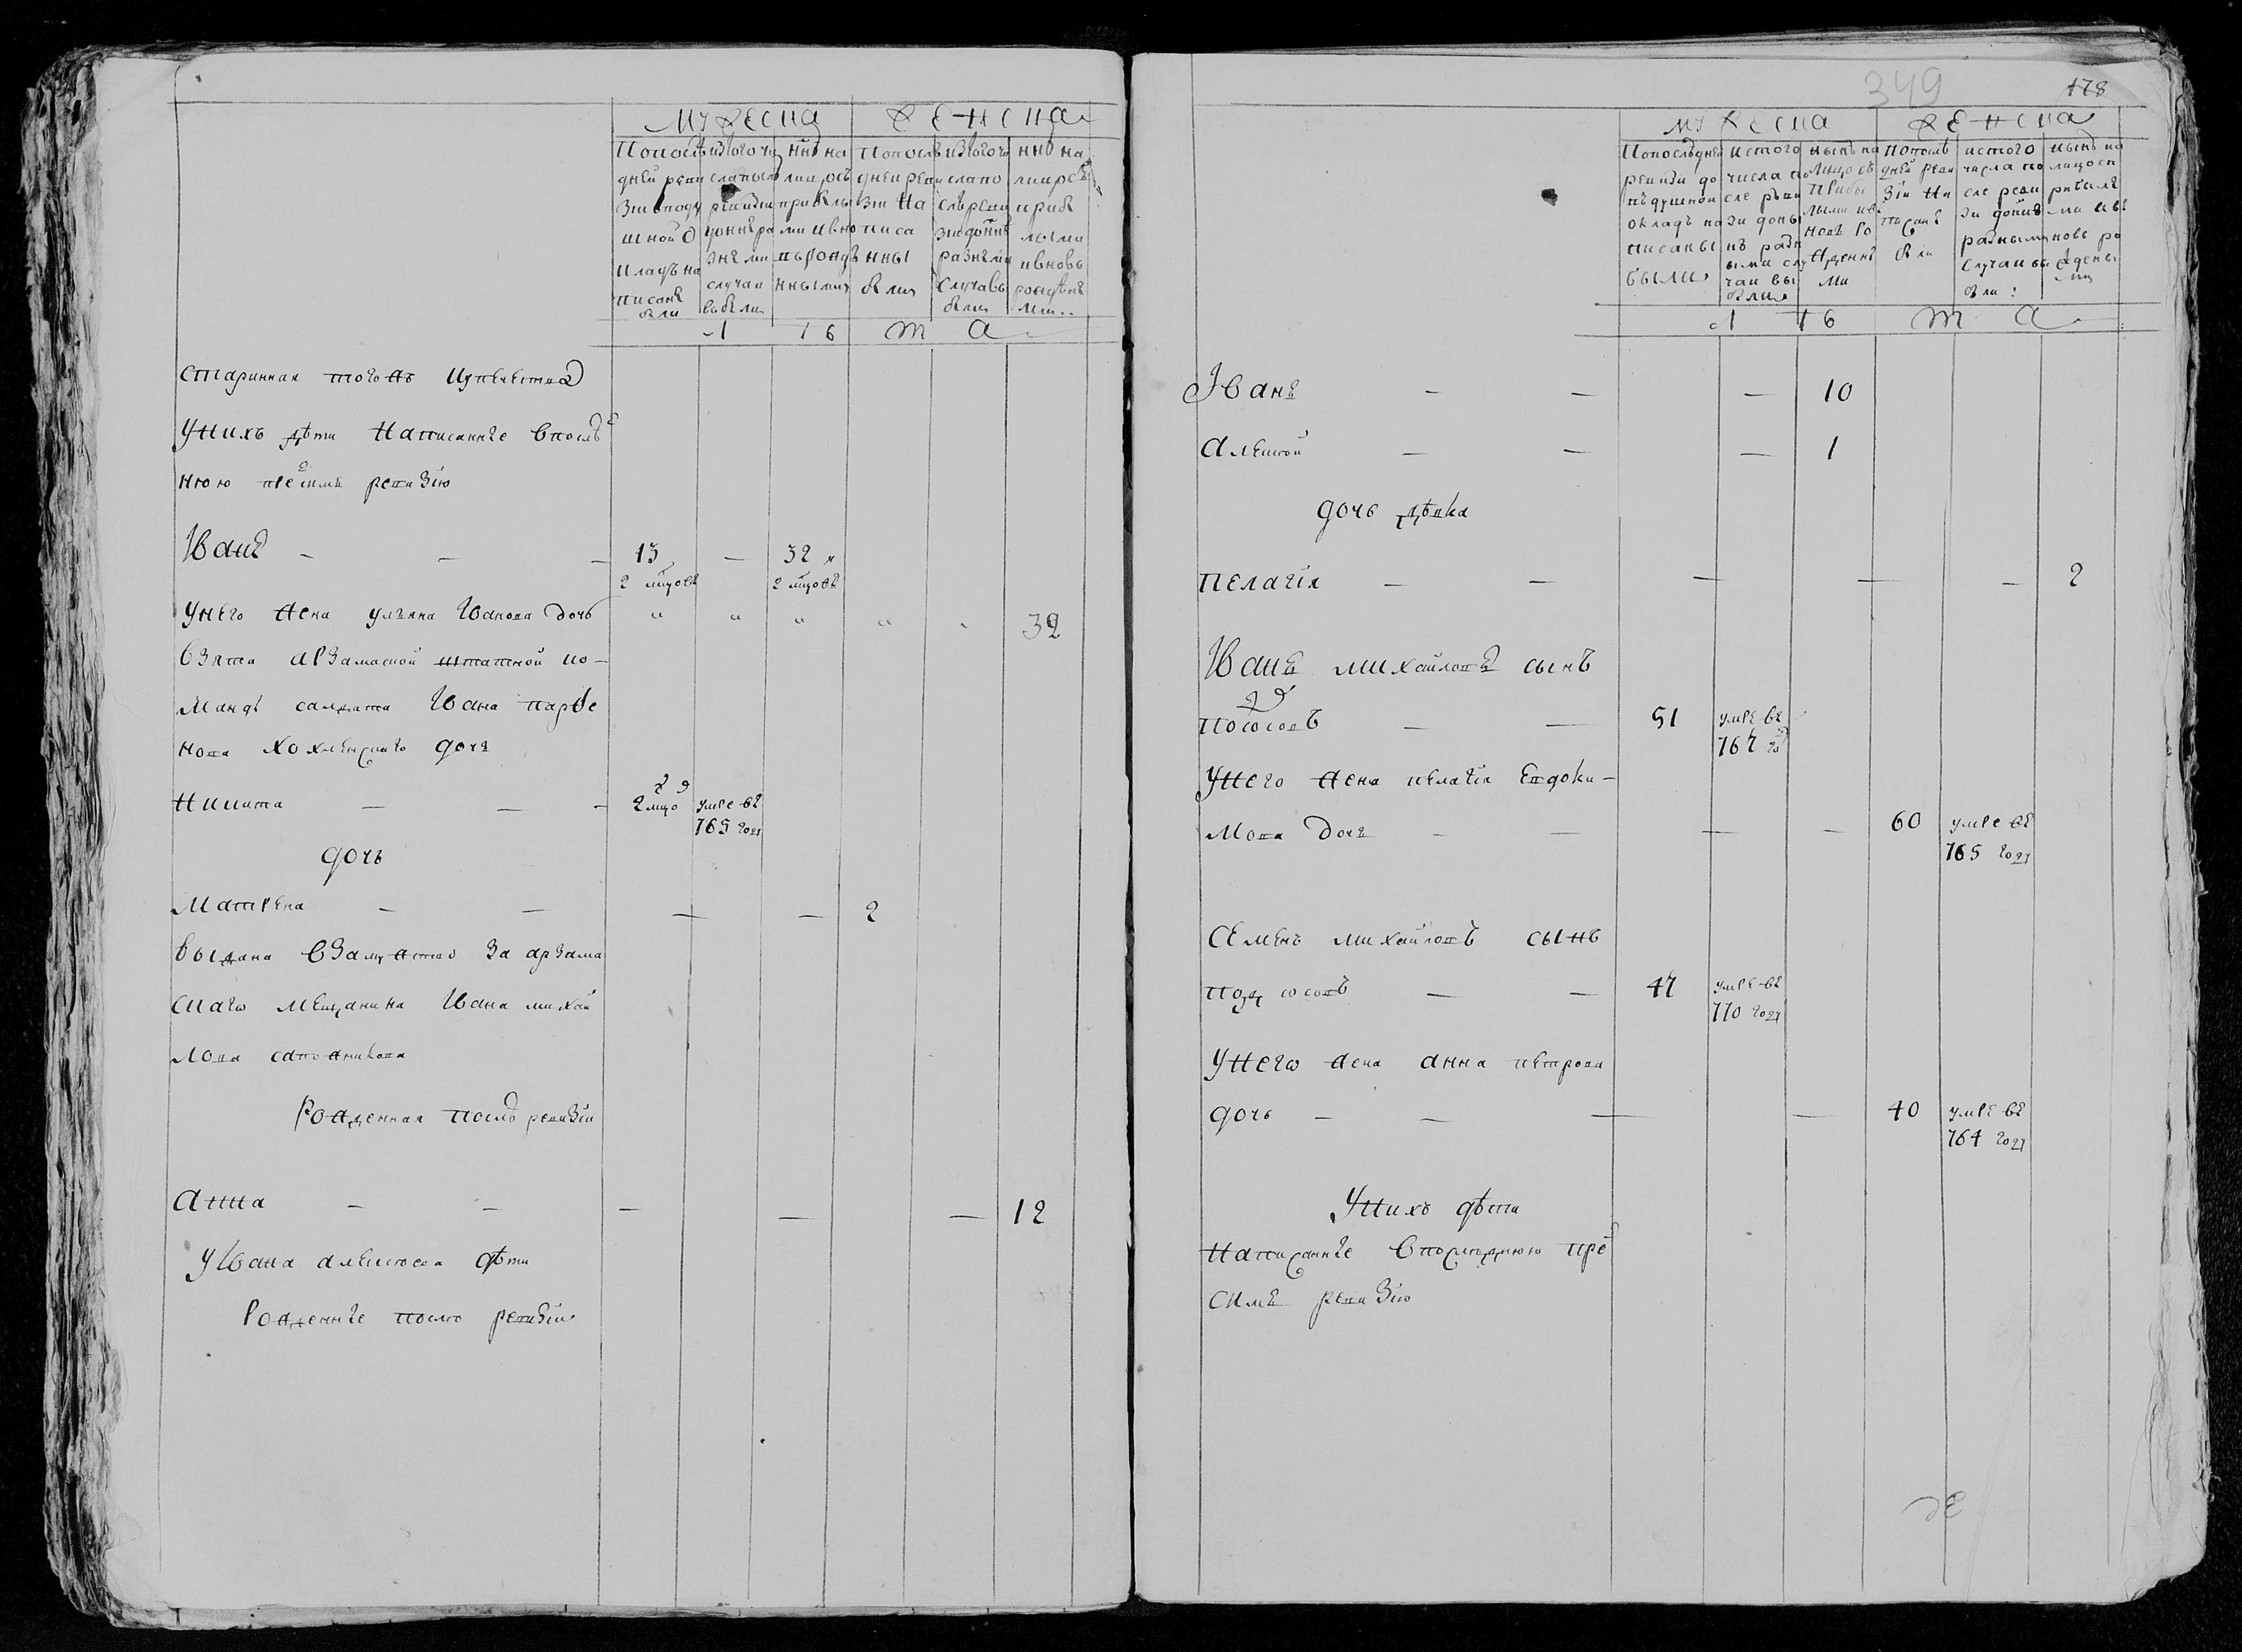 мужеска
женска
Попослѣ
дней реви
зіи в поду
шной о
кладъ на
писанъ
были
изтого чи
сла после
ревизіи
разными
случаи
выбыли
ннѣ на
лицо съ
прибылы
ми ивно
въ рожде
нными
Попослѣ
дней реви
зіи на
писа
нны
были
изтого чи
сла по
слѣ реви
разными
случаи вы
были
ннѣ на
лицо съ
прибы
лыми
ивновь
рожденны
ми
лѣта
старинная тогожъ купечества
унихъ дѣти написанные впослѣд
нюю пред симъ ревизію
Иванъ — — — 13 — 32
2 лицовъ 2 лицовъ
унего жена ульяна Иванова дочь 32
взята арзамаской штатной ко-
манды салдата Ивана парфе
нова хохленскаго дочь
никита — — — 2 лицо умре въ
765 году
дочь
матрена — — — — 2
выдана взамужство за арзама
скаго мещанина Ивана михаи
лова сапожникова
рожденная послѣ ревизіи
анна — — — — — 12
у Ивана алексеева дѣти
рожденные после ревизіи
349
178
мужеска
женска
Попоследней
ревизіи
въ душной
окладъ на
писаны
были
истого
числа по
сле реви
зи до ны
нѣ разн
ыми слу
чаи вы
были
нынѣ на
лицо съ
прибы
лыми ив
новь ро
жденны
ми
Попослѣ
дней реви
зіи на
писаны
были
истого
числа по
сле реви
зи до ннѣ
разными
случаи вы
были
нынѣ на
лицо с п
рибылы
ми ив
новь ро
жденны
ми
лѣта
Іванъ — — — 10
алексѣй — — — 1
дочь дѣвка
пелагія — — — — — 2
Иванъ михайловъ сынъ
подсосовъ — — 51 умре въ
767 год
унего жена пелагія Евдоки-
мова дочь — — — — 60 умре въ
765 году
семенъ михайловъ сынъ
подсосовъ — — 47 умре въ
770 году
унего жена анна петрова
дочь — — — — 40 умре въ
764 году
унихъ дѣти
написанные впоследнюю пред
симъ ревизію